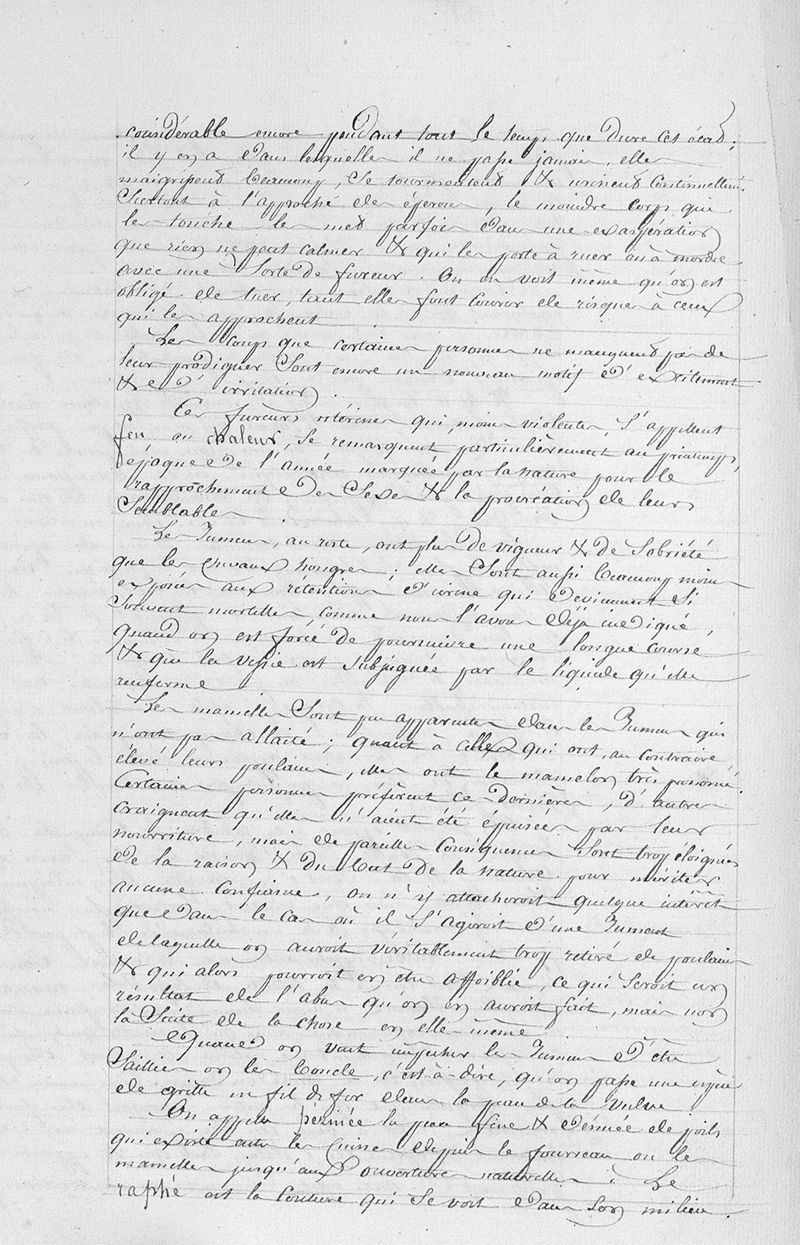 considérable encore pendant tout le temps que dure cet état;
il y en a dans lesquelles il ne passe jamais, elles
maigrissent beaucoup, se tourmentent & urinent continuellemt.
Surtout à l'approche des éperons, le moindre corps qui
les touche les met parfois dans une exaspération
que rien ne peut calmer & qui les porte à ruer ou à mordre
avec une sorte de fureur. On en voit même qu'on est
obligé de tuer, tant elles font courir de risques à ceux
qui les approchent.
Les coups que certaines personnes ne manquent pas de
leur prodiguer sont encore un nouveau motif d'excitement
& d'irritation.
Ces fureurs utérines qui, moins violentes, s'appellent
feu ou chaleurs, se remarquent particulièrement au printemps,
époque de l'année marquée par la nature pour le
rapprochement des sexes & la procréation de leurs
semblables.
Les Jumens, au reste, ont plus de vigueur & de sobriété
que les chevaux hongres; elles sont aussi beaucoup moins
exposées aux rétentions d'urine qui deviennent si
souvent mortelles, comme nous l'avons déjà indiqué,
quand on est forcé de poursuivre une longue course
& que la vessie est subjuguée par le liquide qu'elle
renferme.
Les mamelles sont peu apparentes dans les Jumens qui
n'ont pas allaité; quant à celles qui ont, au contraire,
élevé leurs poulains, elles ont le mamelon très prononcé.
Certaines personnes préfèrent ces dernières, d'autres
craignent qu'elles n'aient été épuisées par leur
nourriture, mais de pareilles conséquences sont trop éloignées
de la raison & du but de la nature pour mériter
aucune confiance, on n'y attacheroit quelque intérêt
que dans le cas où il s'agiroit d'une Jument
de laquelle on auroit véritablement trop retiré de poulains
& qui alors pourroit en être affoiblie, ce qui seroit un
résultat de l'abus qu'on en auroit fait, mais non
la suite de la chose en elle-même.
Quand on veut empêcher les Jumens d'être
saillies on les boucle, c'est-à-dire, qu'on passe une espèce
de grille en fil de fer dans la peau de la vulve.
On appelle périnée la peau fine & dénuée de poils
qui existe entre les cuisses depuis le fourreau ou les
mamelles jusqu'aux ouvertures naturelles : Le
raphé est la couture qui se voit dans son milieu.